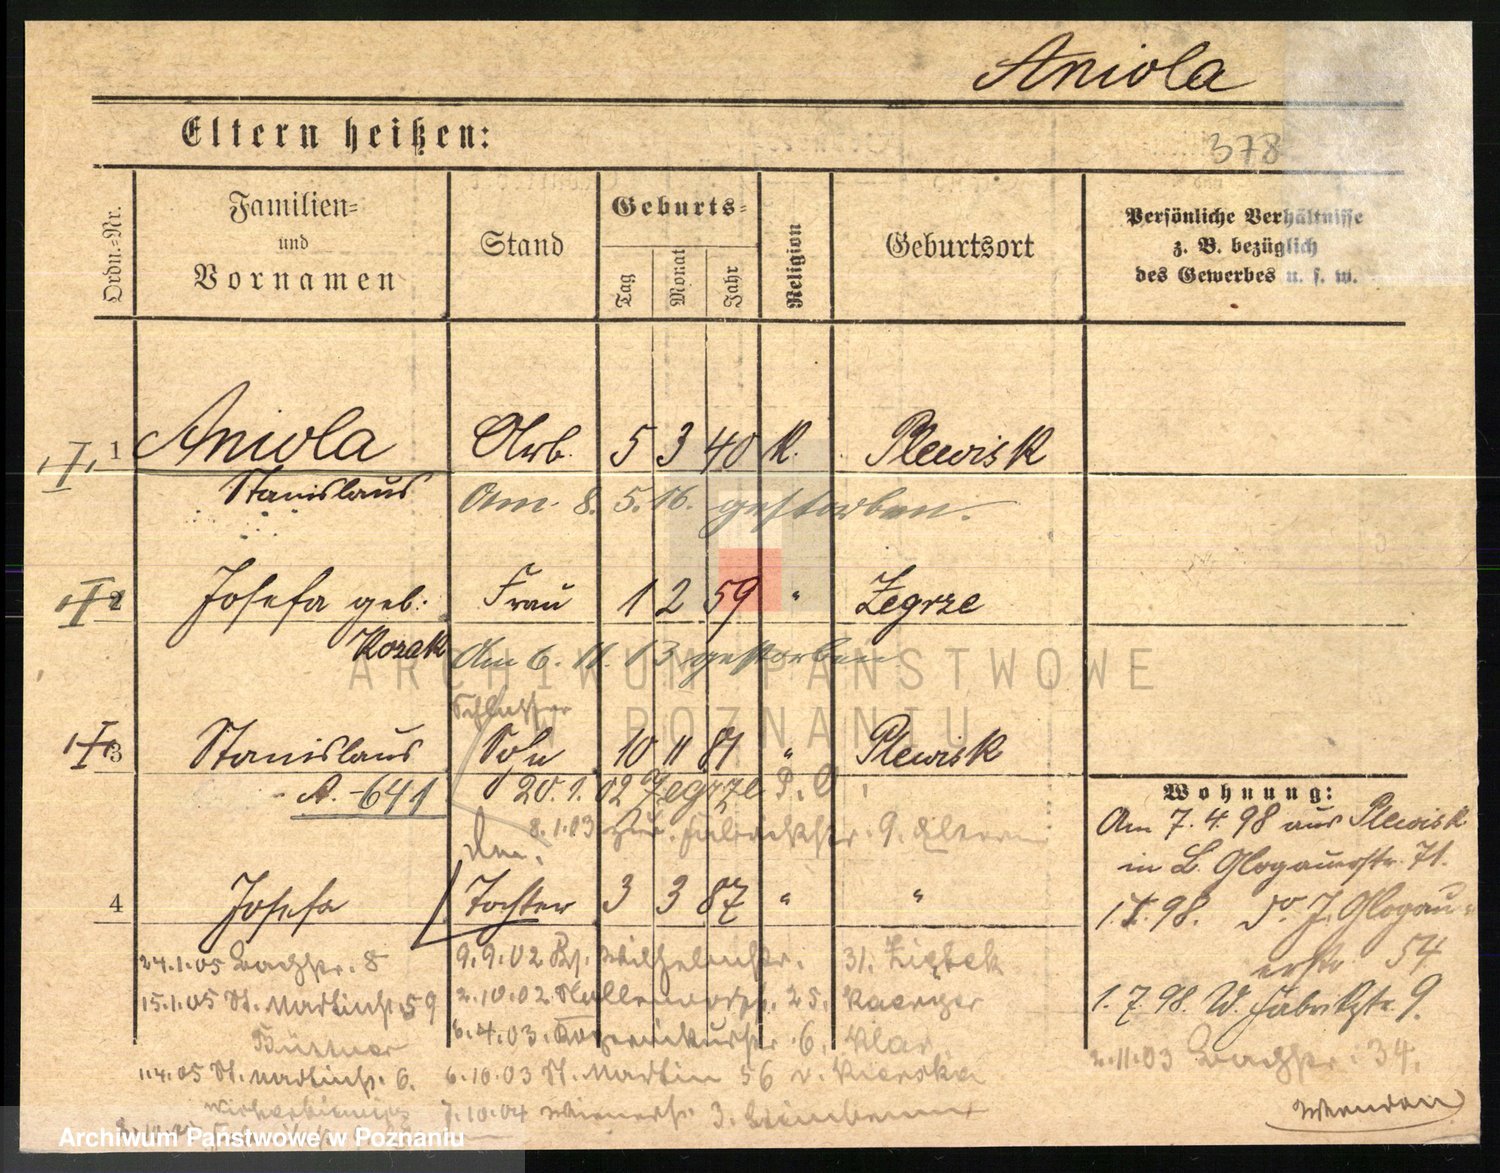 Aniola
Eltern heißen:
378
Ordn.=Nr.
Familien=
und
Vornamen
Stand
Geburts=
Tag
Monat
Jahr
Religion
Geburtsort
Persönliche Verhältnisse
z. B. bezüglich
des Gewerbes u. s. w.
1 Aniola Arb. 5 3 40 K. Plewisk
Stanislaus Am 8. 5. 16. gestorben.
2 Josefa geb. Frau 1 2 59 " Zegrze
Kozak Am 6. 11. 13 gestorben
ARCHIWUM PAŃSTWOWE
W POZNANIU
Schlosser
3 Stanislaus Sohn 10 11 81 " Plewisk
A. - 641 20. 1. 02 Zegrze P. O
Wohnung:
8. 1. 03 zur. Fabrikstr. 9. Eltern
Am 7. 4. 98 aus Plewisk
in L. Glogauerstr. 71.
4 Josefa Tochter 3 3 87 " "
1. 98. do. J. Glogauer
str. 54
1. 7. 98. W. Fabrikstr. 9.
24. 1. 05 Bachstr. 8 9. 9. 02 Wilhelmstr. 31.
15. 1. 05 St. Martinstr. 59 2. 10. 02. 25. Kaerger
Büttner 6. 4. 03. 6. Klar
2. 11. 03 Bachstr. 34.
1. 4. 05 St. Martinstr. 6. 6. 10. 03 St. Martin 56 v. Kierska
7. 10. 04 Wienerstr. 3.
Wenden
Archiwum Państwowe w Poznaniu